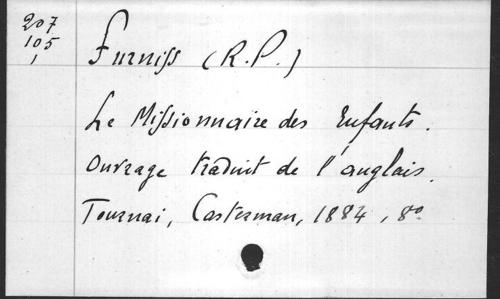 207
105
1
Furniss (R.P.)
Le Missionnaire des Enfants.
Ouvrage traduit de l'anglais.
Tournai, Casterman, 1884, 8o